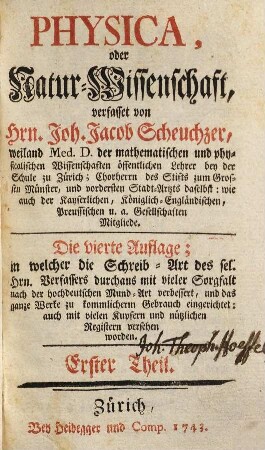 PHYSICA,
oder
Natur-Wissenschaft,
verfasset von
Hrn. Joh. Jacob Scheuchzer,
weiland Med. D. der mathematischen und phy-
sicalischen Wissenschaften öffentlichen Lehrer bey der
Schule zu Zürich; Chorherrn des Stifts zum Gros-
sen Münster, und vordersten Stadt-Arzts daselbst: wie
auch der Kayserlichen, Königlich-Engländischen,
Preussischen u. a. Gesellschaften
Mitgliede.
Die vierte Auflage;
in welcher die Schreib-Art des sel.
Hrn. Verfassers durchaus mit vieler Sorgfalt
nach der hochdeutschen Mund-Art verbessert, und das
ganze Werke zu kommlicherm Gebrauch eingerichtet;
auch mit vielen Kupfern und nützlichen
Registern versehen
worden.
Joh. Theoph. Hoeffel
Erster Theil.
Zürich,
Bey Heidegger und Comp. 1743.